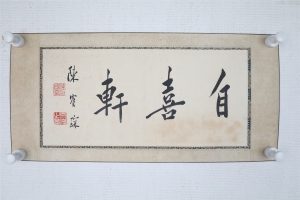 自喜軒
陳寶琛